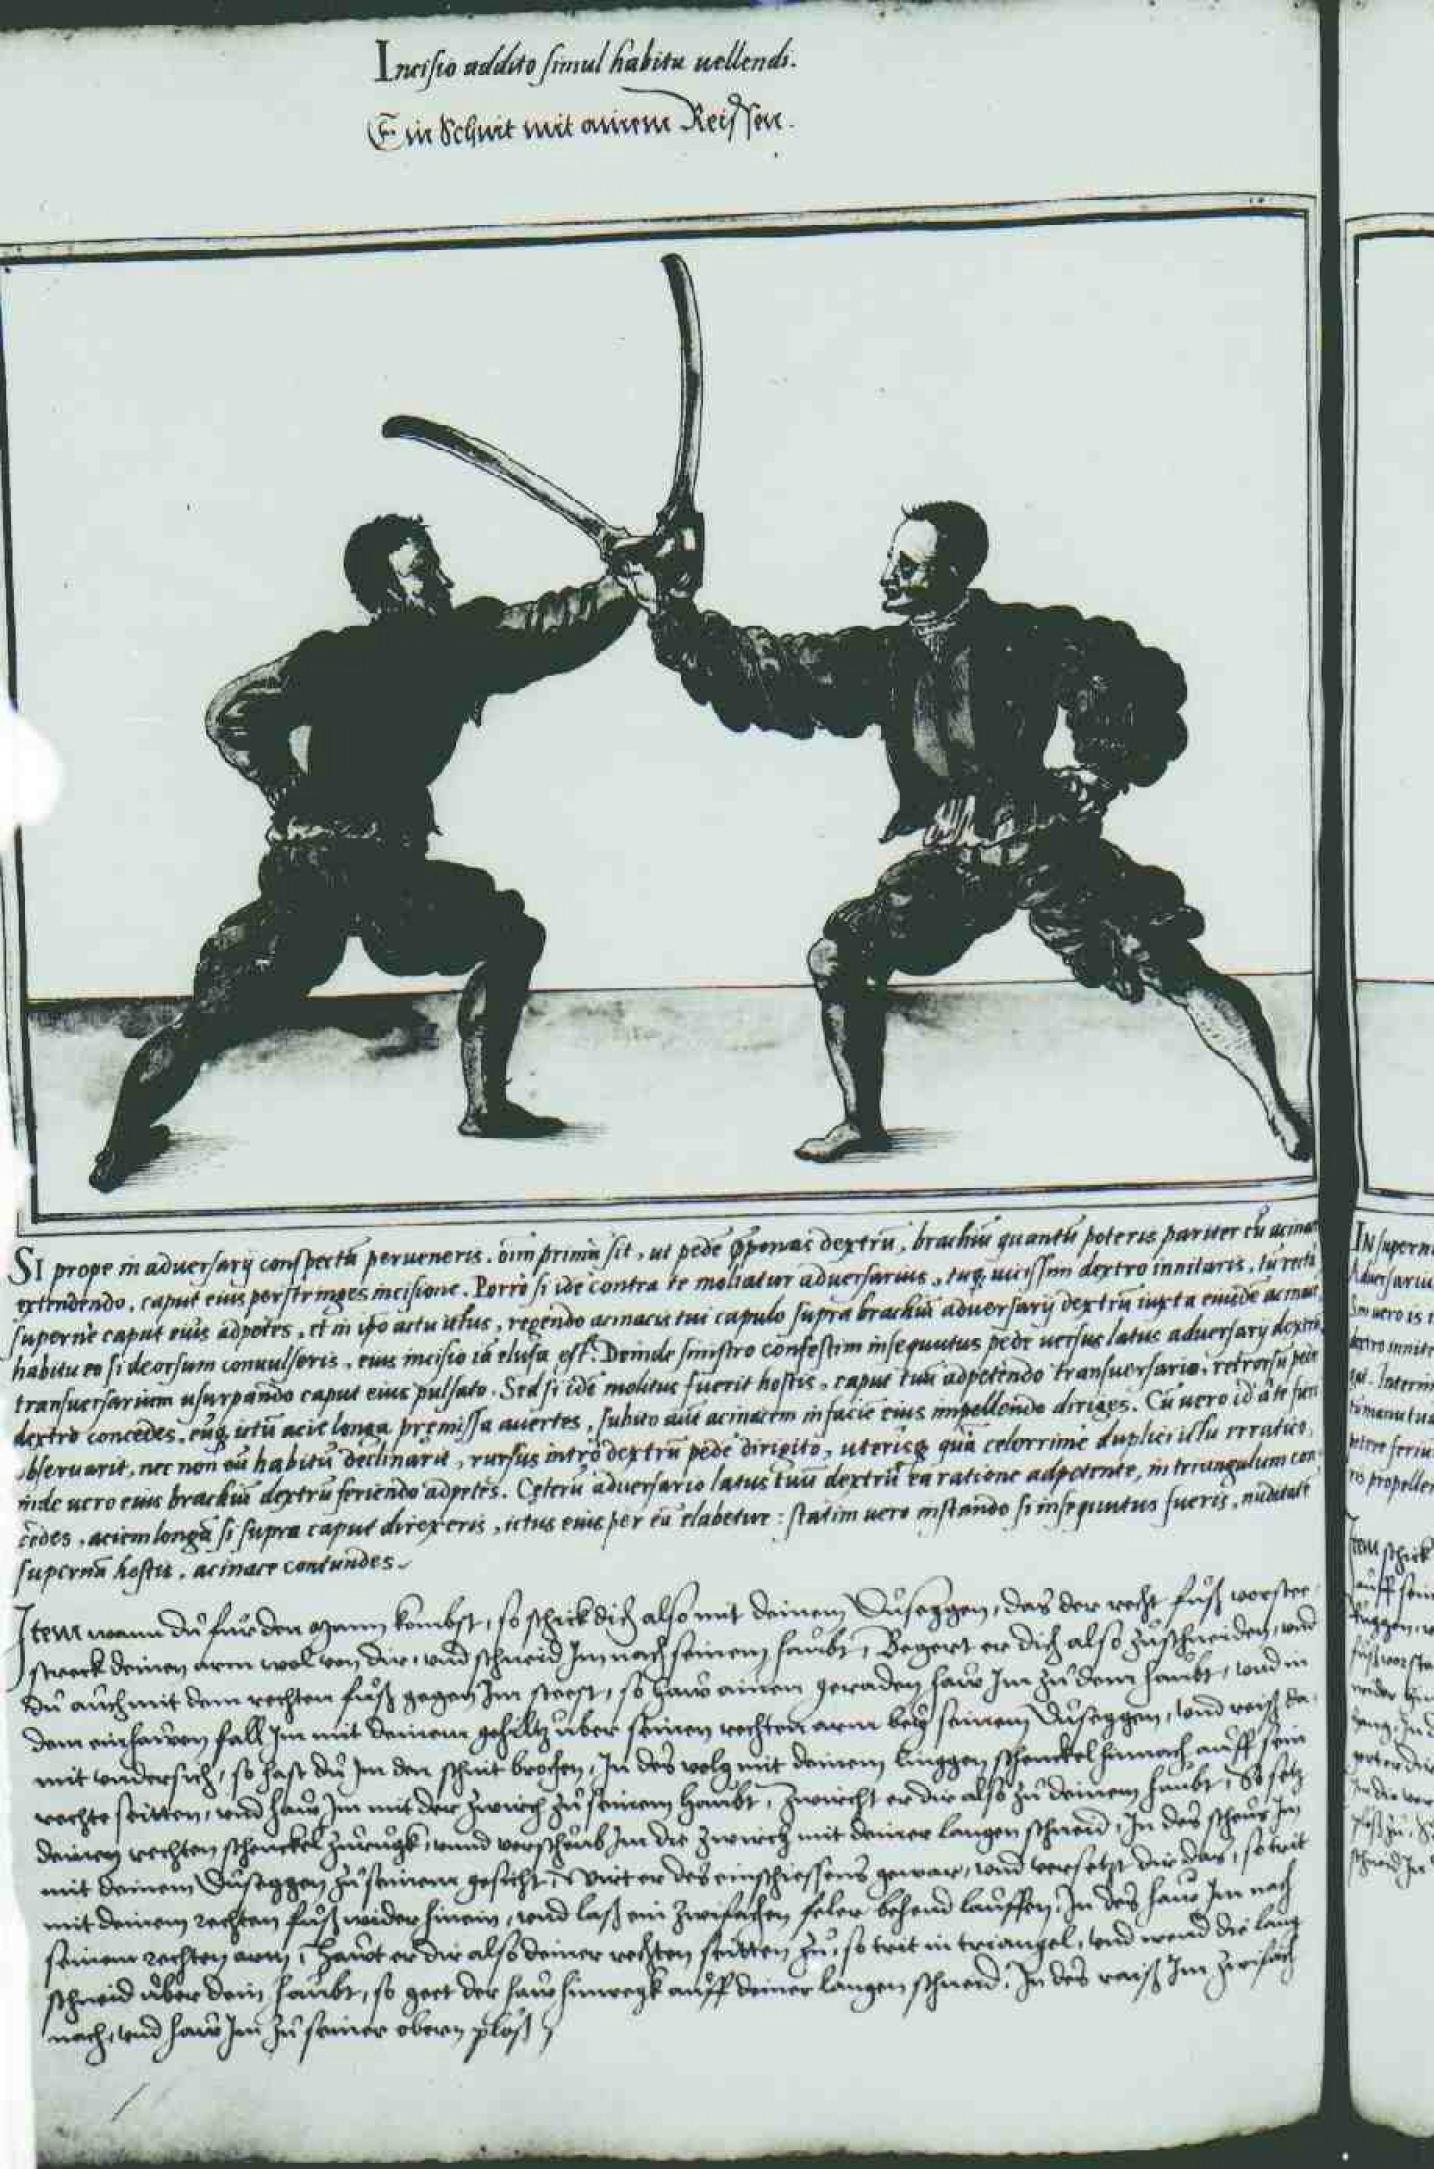 Incisio addito simul habitu vellendi.
Ein Schnit mit ainem Reissen.
SI prope in adversarij conspectū perveneris. oīm primū sit, ut pedē ꝓponas dextrū, brachiū quantū poteris pariter cū acina
extendendo, caput eius perstringes incisione. Porrò si idē contra te moliatur adversarius, tuq; vicissim dextro innitaris, tū recta
supernè caput eius adpetes, et in ipō actu ictus, regendo acinacis tui capulo supra brachiū adversarij dextrū iuxta eiusdē acinacē,
habitu eo si deorsum convulseris, eius incisio iā elusa est. Deinde sinistro confestim insequutus pede versus latus adversarij dextrū,
transversarium usurpando caput eius pulsato. Sed si idē molitus fuerit hostis, caput tuū adpetendo transversario, retrorsū pede
dextro concedes, eūq; ictū acie longa premissa avertes, subito aūt acinacem in faciē eius impellendo diriges. Cū vero id à te fieri
observarit, nec non eū habitū declinarit, rursus intrò dextrū pedē dirigito, uterisq; quā celerrimè duplici ictu erratico,
inde vero eius brachiū dextrū feriendo adpetes. Ceterū adversario latus tuū dextrū ea ratione adpetente, in triangulum con
cedes, aciem longā si supra caput direxeris, ictus eius per eā elabetur: statim vero instando si insequutus fueris, nuditatē
supernā hostis, acinace contundes.
Item wann dů für den man kombst, so schick dich also mit deinem Důseggen, das der recht fůß vorstee
streck deinen arm wol von dir, und schneid Im nach seinem haůbt, Begert er dich also zůschneiden, und
dů aůch mit dem rechten fůß gegen Im steest, so haw ainen geraden haw Im zů dem haůbt, und in
dem einhawen fall Im mit deinem gehiltz über seinen rechten arm bey seinem Důseggen, und reiß da
mit undersich, so hast dů Im den schnit brochen, In des volg mit deinem linggen schenckel hinnach aůff sein
rechte seitten, und haw Im mit der zwirch zů seinem haubt, Zwircht er dir also zů deinem haůbt, So setz
deinen rechten schenckel zůrugk, unnd verscheub Im die zwirch mit deiner langen schneid, In des scheuß Im
mit deinem Důseggen zů seinem gesicht, Wirt er des einschiessens gewar, und versetzt dir das, so trit
mit deinem rechten fůß wider hinein, und laß ein zwifachen feler behend laůffen, In des haw Im nach
seinem rechten arm, Hawt er dir also deiner rechten seitten zů, so trit in triangel, und wend die lang
schneid über dein haůbt, so geet der haw hinwegk aůff deiner langen schneid, In des raiß Im zwifach
nach, und haw Im zů seiner obern plöß